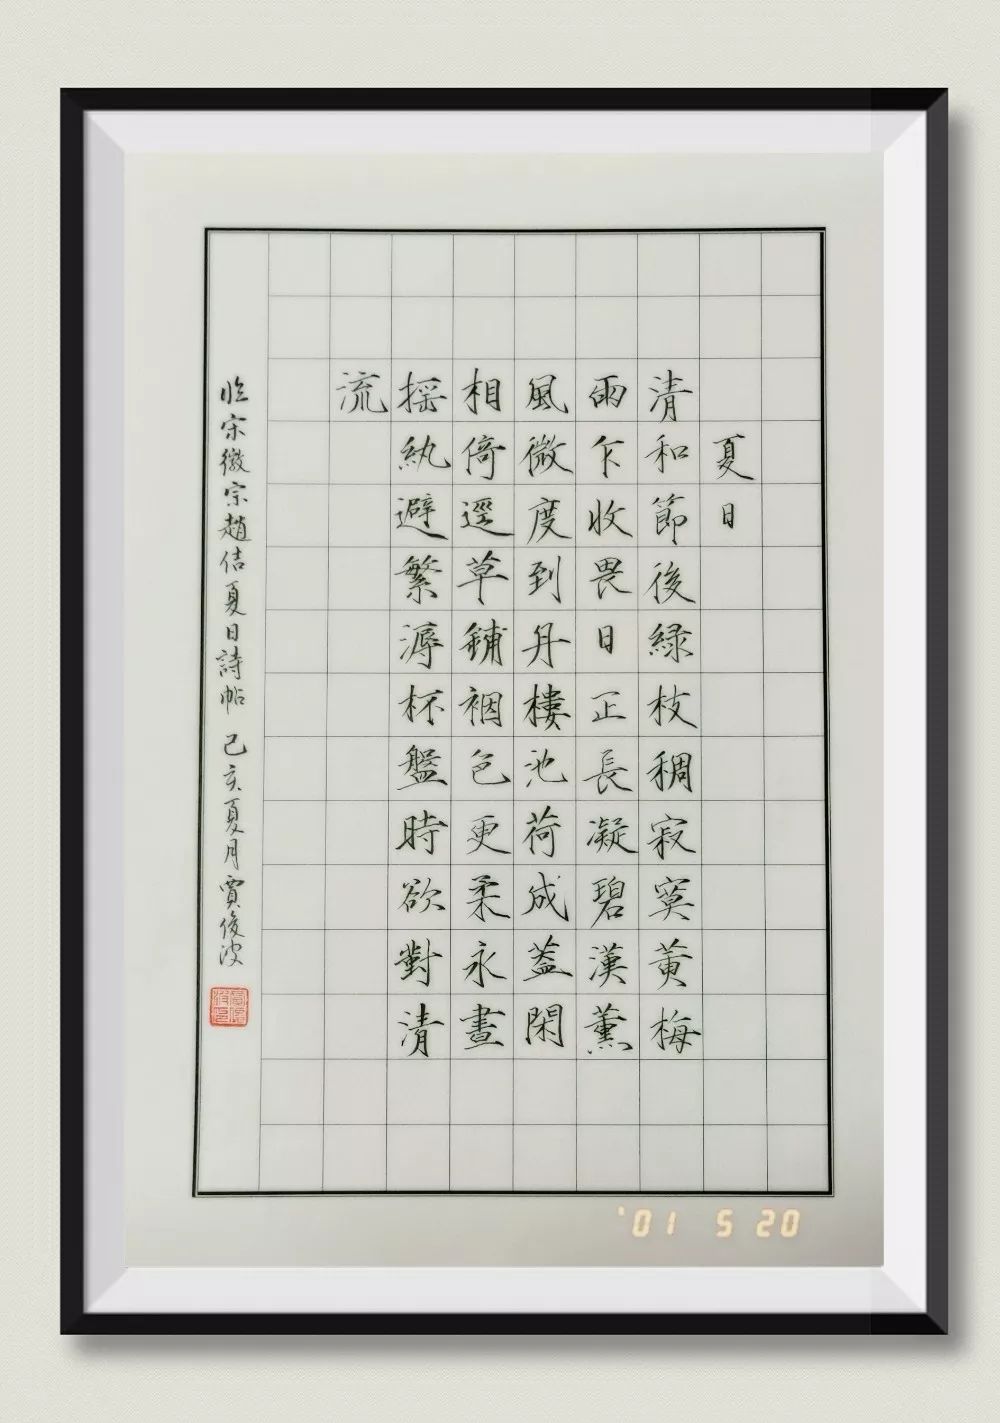 夏日
清和節後緑枝稠寂寞黄梅
雨乍收畏日正長凝碧漢薰
風微度到丹樓池荷成蓋閑
相倚逕草鋪裀色更柔永晝
摇紈避繁溽杯盤時欲對清
流
临宋徽宗趙佶夏日詩帖 己亥夏月賈俊波
'01 5 20